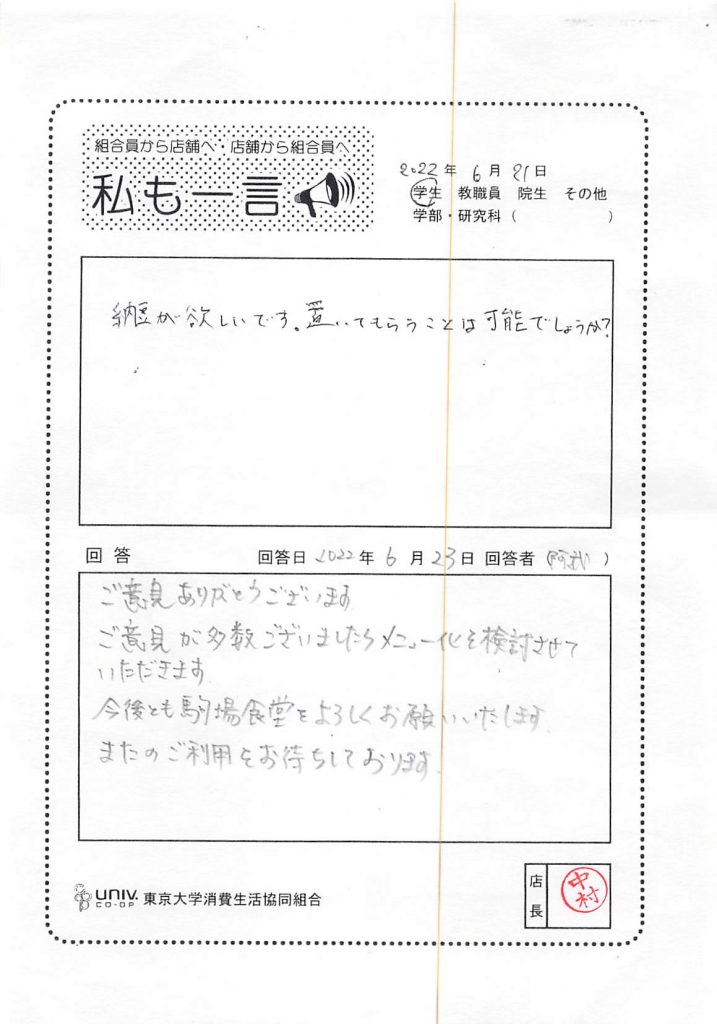 組合員から店舗へ・店舗から組合員へ
私も一言
2022年 6月 21日
学生 教職員 院生 その他
学部・研究科( )
納豆が欲しいです。置いてもらうことは可能でしょうか?
回答 回答日 2022年 6月 23日 回答者(阿武)
ご意見ありがとうございます
ご意見が多数ございましたらメニュー化を検討させて
いただきます
今後とも駒場食堂をよろしくお願いいたします
またのご利用をお待ちしております
UNIV. CO-OP 東京大学消費生活協同組合
店長
中村